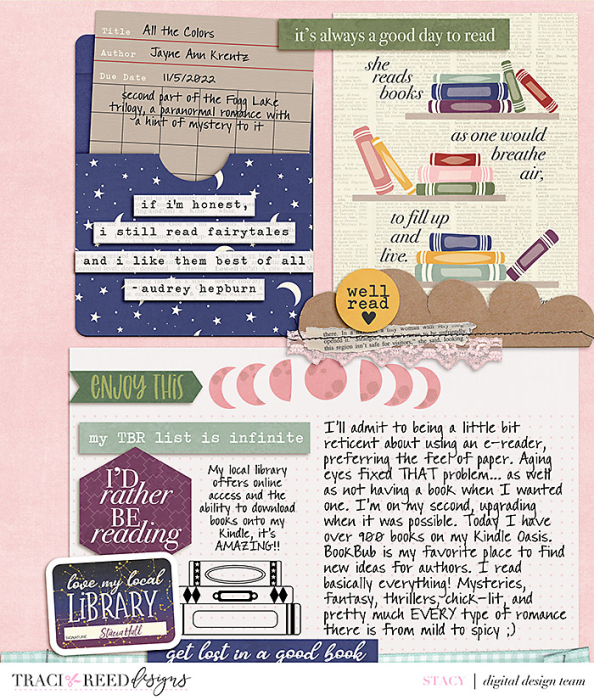 Title All the Colors
Author Jayne Ann Krentz
Due Date 11/5/2022
second part of the Fogg Lake
trilogy, a paranormal romance with
a hint of mystery to it
if i'm honest,
i still read fairytales
and i like them best of all
-audrey hepburn
it's always a good day to read
she
reads
books
as one would
breathe
air,
to fill up
and
live.
well
read
this region isn't safe for visitors," she said, looking
ENJOY THIS
my TBR list is infinite
I'D
rather
BE
reading
My local library
offers online
access and the
ability to download
books onto my
Kindle, it's
AMAZING!!
love my local
LIBRARY
SIGNATURE Stacy Hall
get lost in a good book
I'll admit to being a little bit
reticent about using an e-reader,
preferring the feel of paper. Aging
eyes fixed THAT problem... as well
as not having a book when I wanted
one. I'm on my second, upgrading
when it was possible. Today I have
over 900 books on my Kindle Oasis.
BookBub is my favorite place to find
new ideas for authors. I read
basically everything! Mysteries,
fantasy, thrillers, chick-lit, and
pretty much EVERY type of romance
there is from mild to spicy ;)
TRACI REED designs
STACY | digital design team